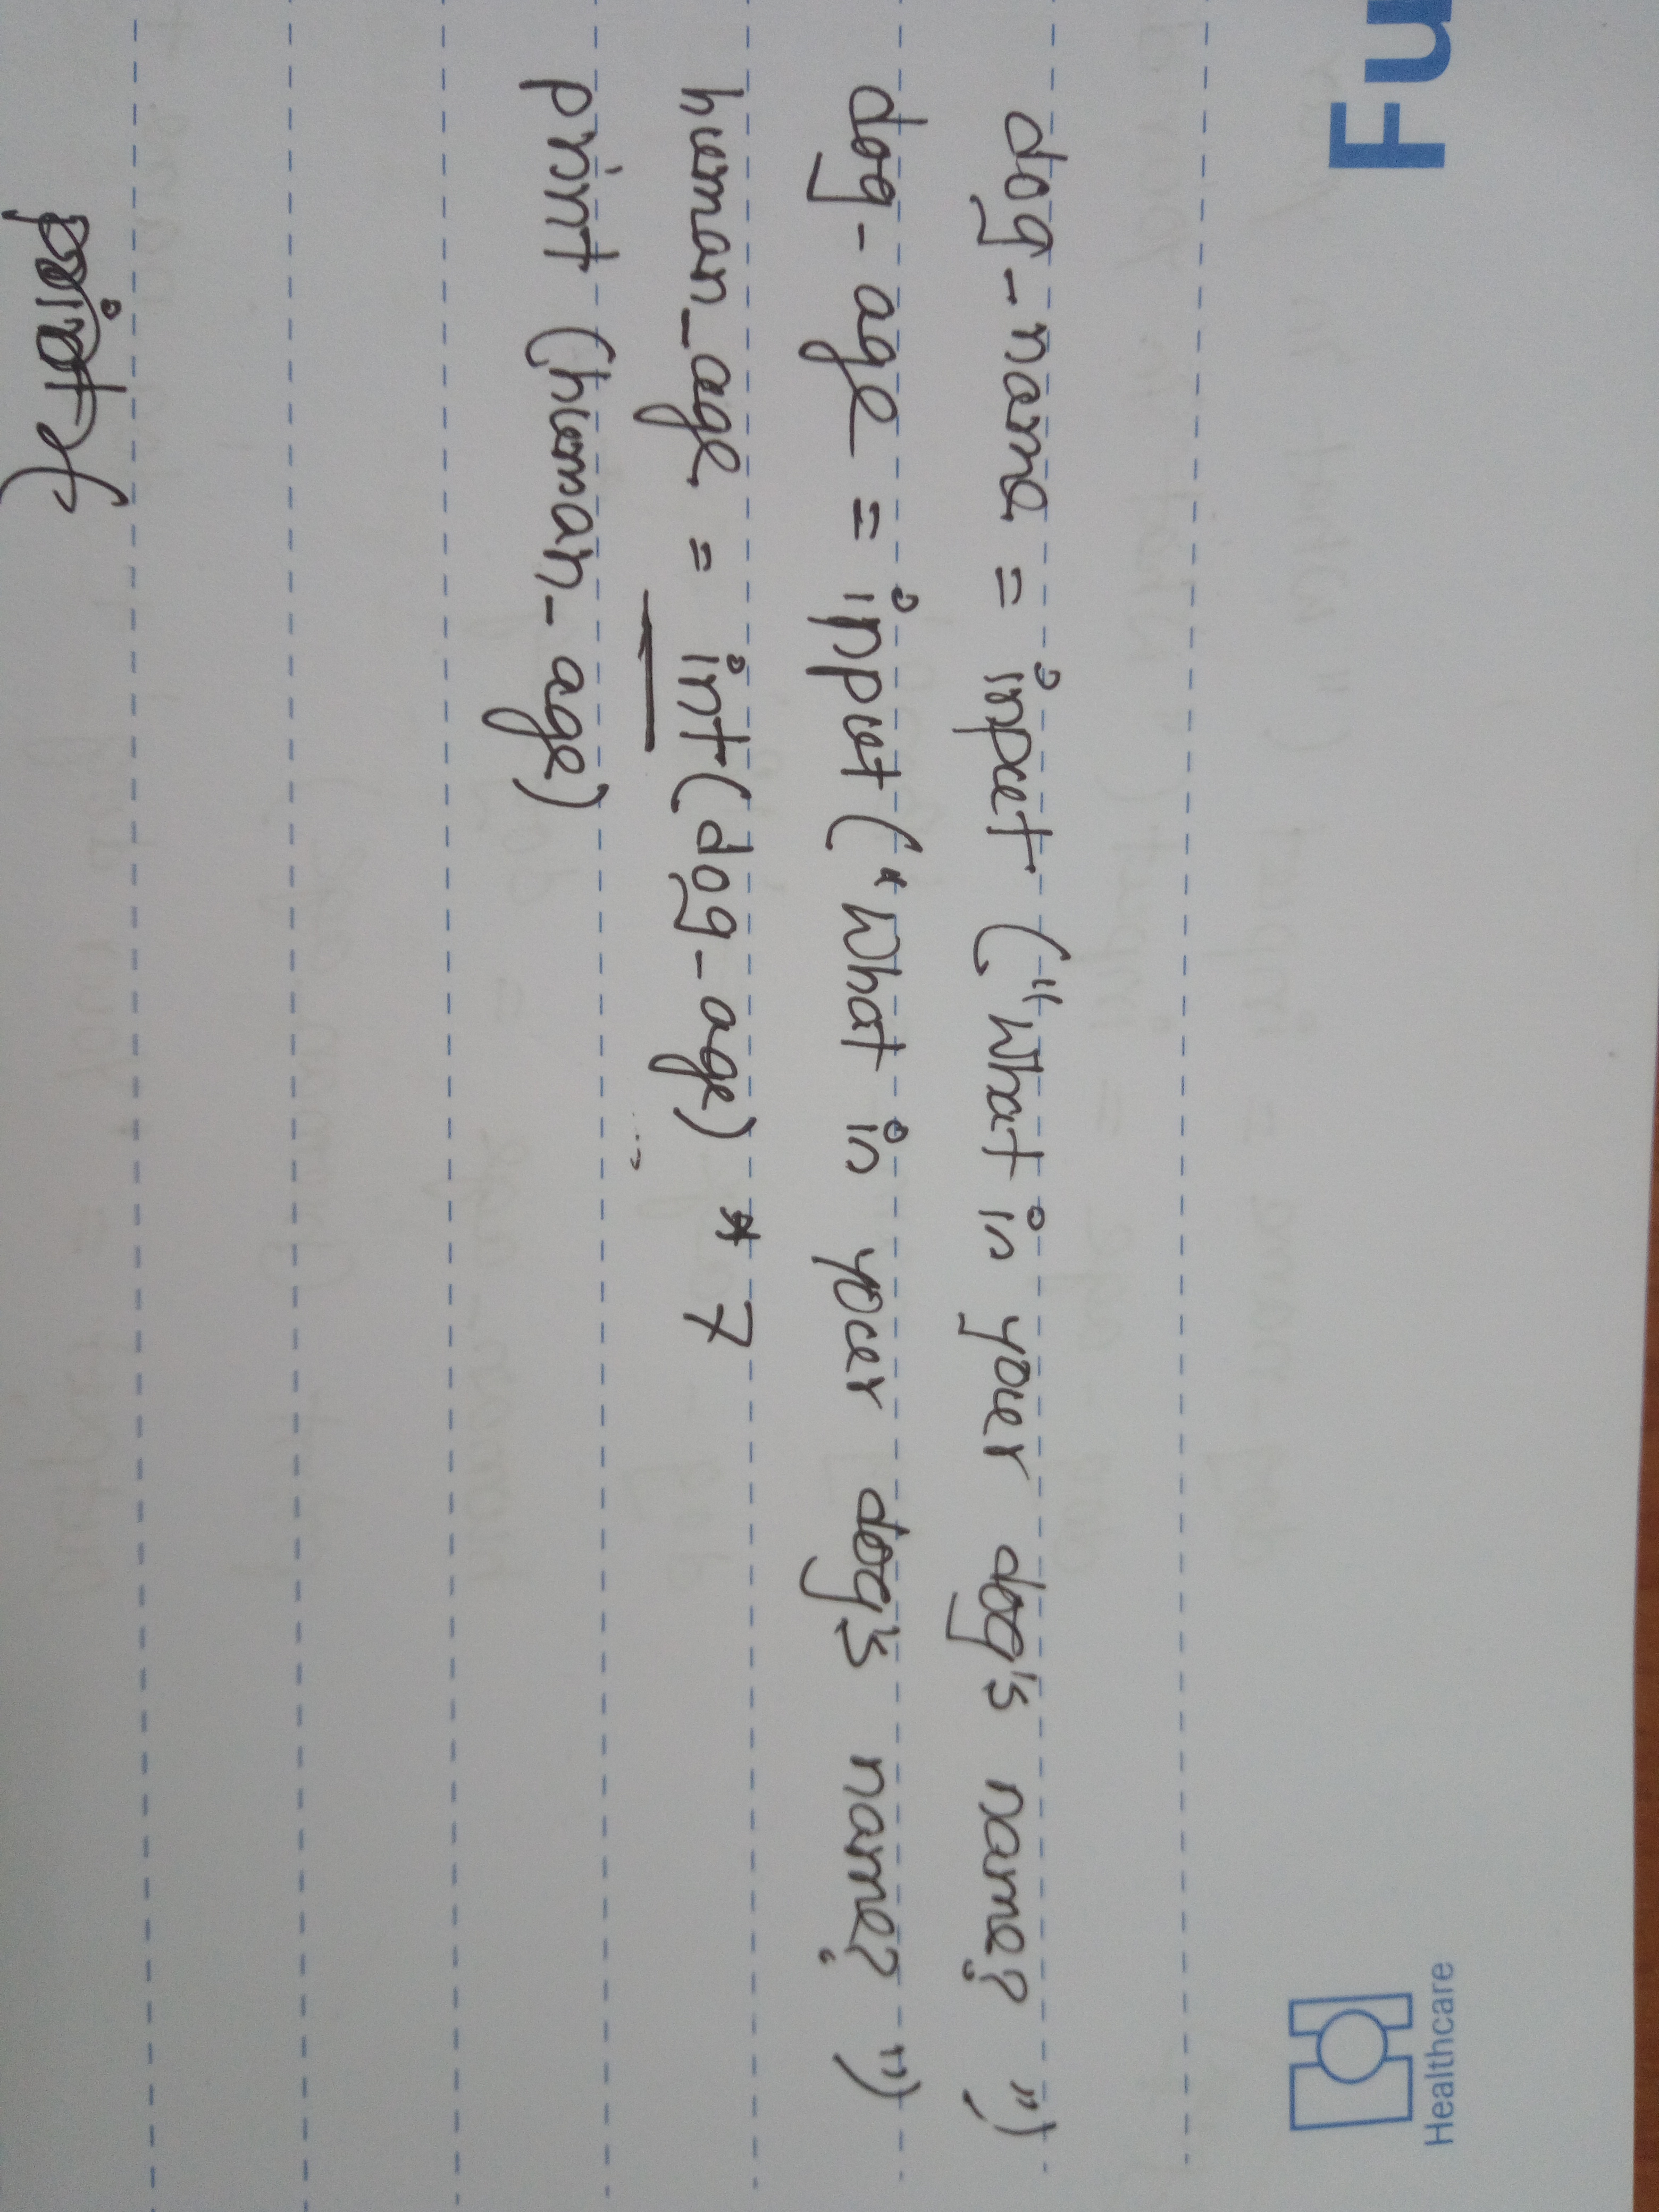 Healthcare
Fu
dog_name = input ("What is your dog's name? ")
dog_age = input ("What is your dog's name? ")
human_age = int(dog_age) * 7
print (human_age)
print(